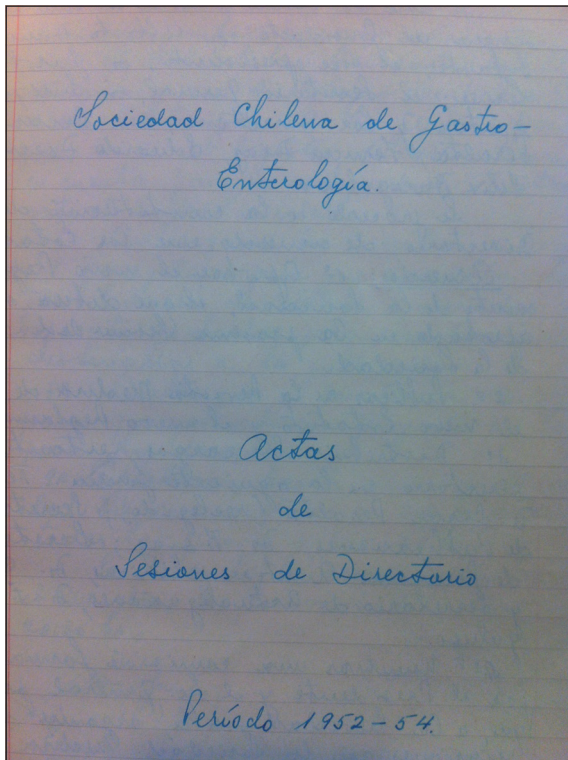 Sociedad Chilena de Gastro-
Enterología.
Actas
de
Sesiones de Directorio
Período 1952-54.